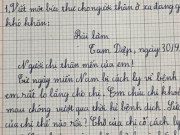 1. Viết một bức thư cho người thân ở xa đang g
khó khăn:
Bài làm
Tam Điệp, ngày 30/9
Người chị thân mến của em!
Từ ngày miền Nam bị cách ly vì bệnh
em rất lo lắng cho chị. Em chúc chị khoẻ
mau chóng vượt qua thời kì bệnh dịch.
của chị thế nào rồi? Chỗ của chị có cách ly